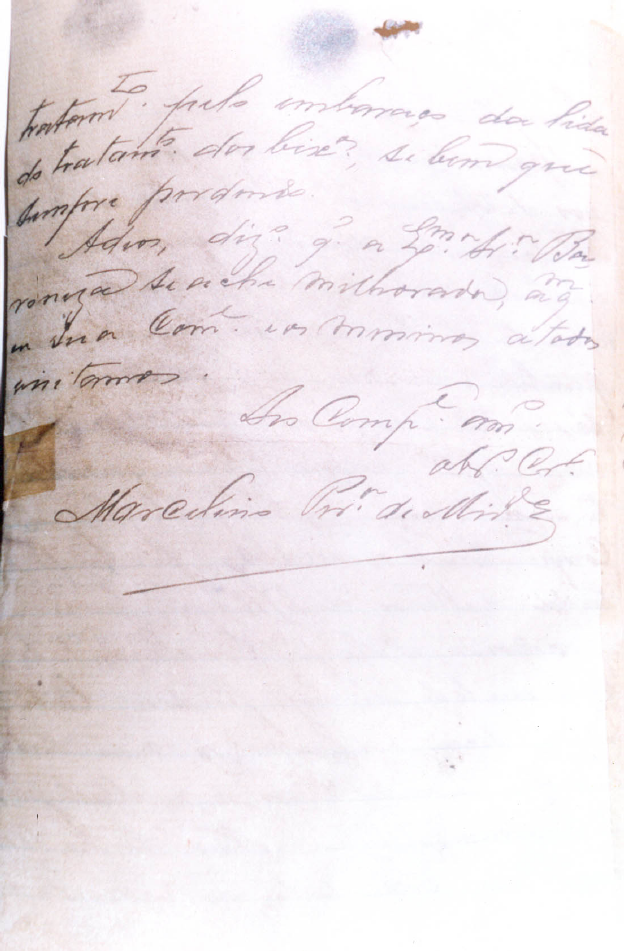 tratamto. pelo embaraço da lida
do tratamto. dos bixos, se bem que
sempre perdoné.
Adeos, dizo. q. a Exma. Sra. Ba-
roneza se acha milhorada, a qm.
e sua Come. e os meninos a todos
visitamos.
Seo Compe. amo.
obro. Cro.
Marcelino Pra. de Mirda.